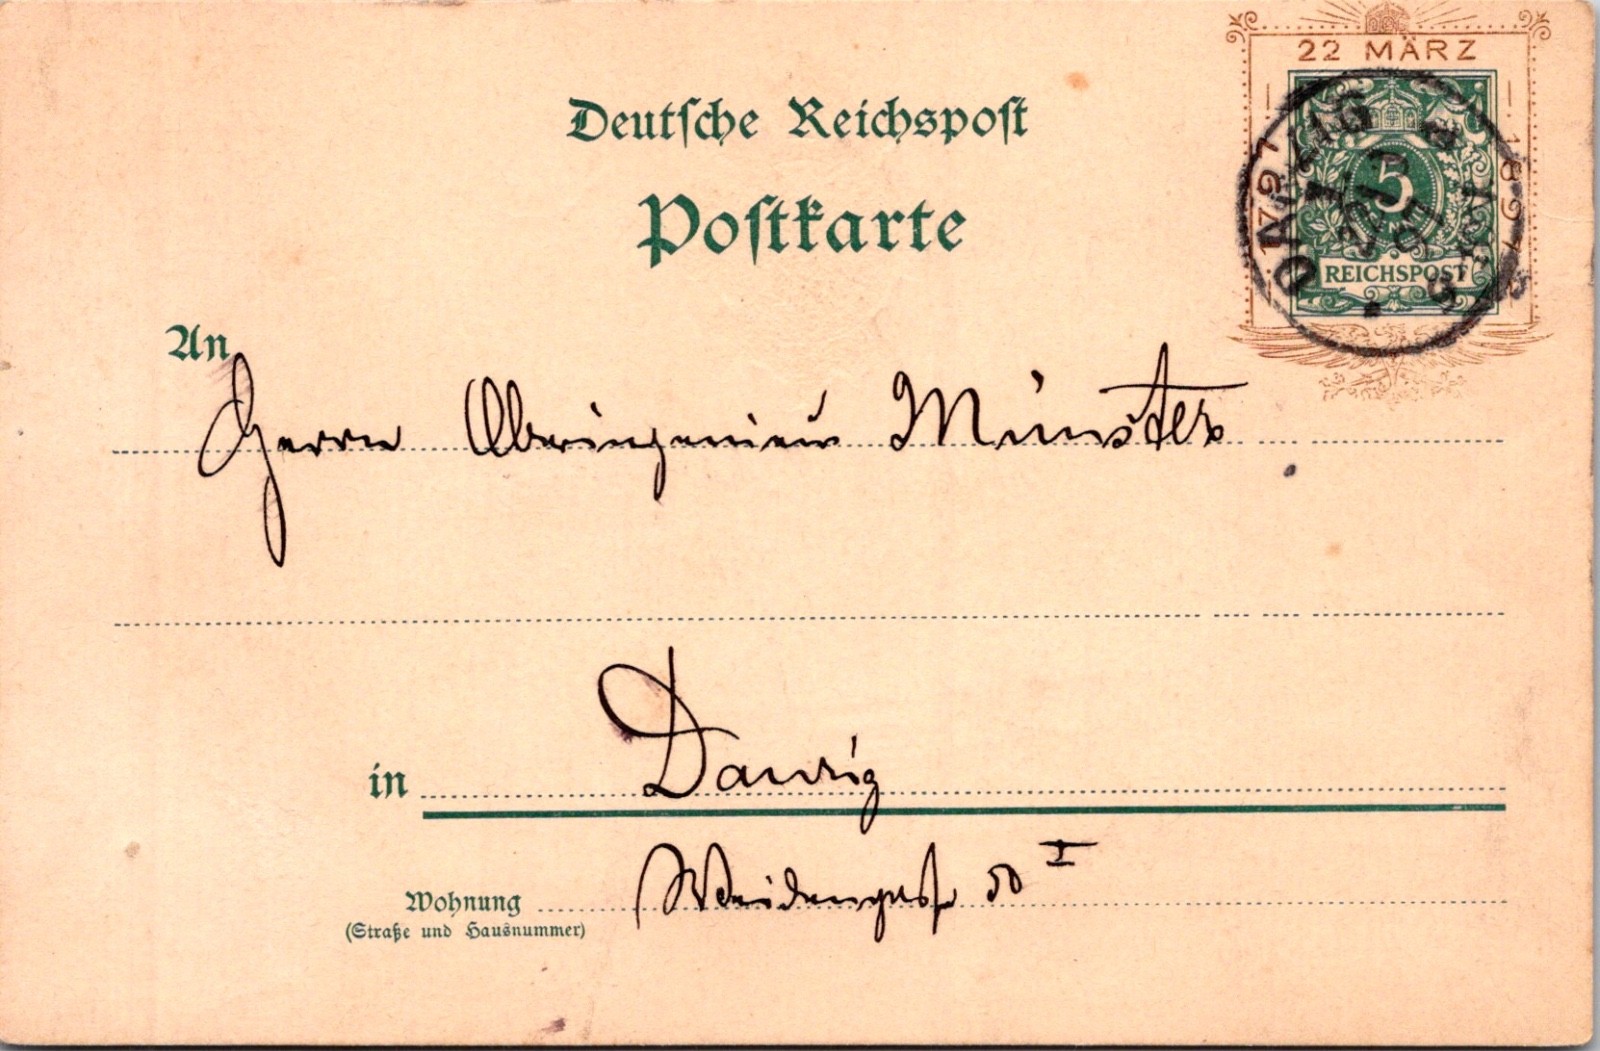 22 MÄRZ
1797
1897
5
REICHSPOST
DANZIG
Deutsche Reichspost
Postkarte
An
Herrn Oberingenieur Münster
in Danzig
Weidengasse 50 I
Wohnung
(Straße und Hausnummer)